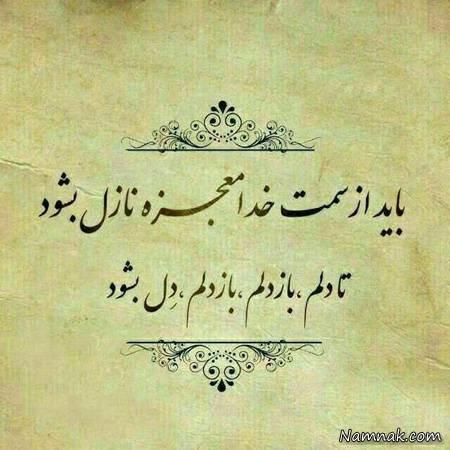 باید از سمت خدا معجزه نازل بشود
تا دلم ،باز دلم ،باز دلم ،دِل بشود
Namnak.com